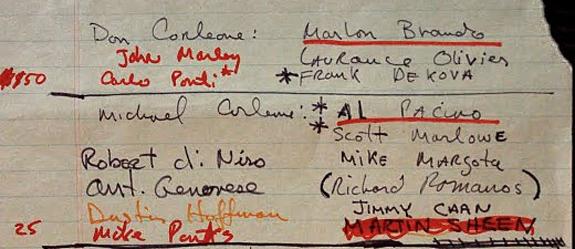 Don Corleone: Marlon Brando
John Marley Laurance Olivier
$150 Carlo Ponti* *FRANK DE KOVA
Michael Corleone: * AL PACINO
* Scott MARLOWE
Robert di Niro MIKE MARGOTA
Ant. Genovese (Richard Romanos)
Dustin Hoffman JIMMY CAAN
25 Mike MARTIN SHEEN